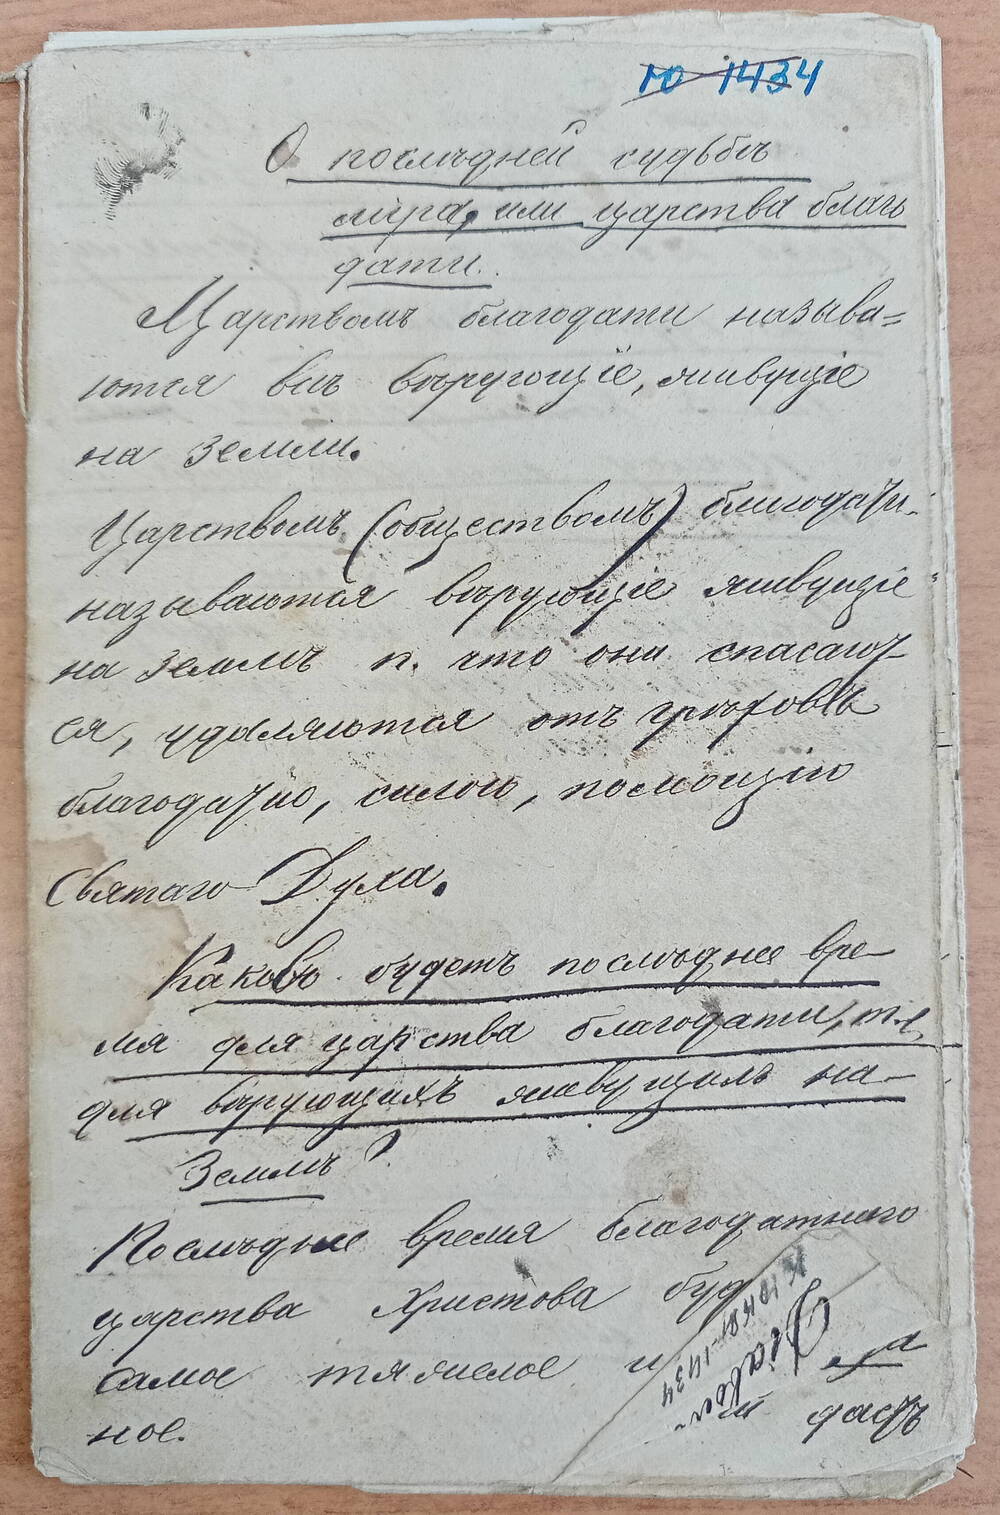 Ю 1434
О послѣдней судьбѣ
мира, или царства благо
дати.
Царствомъ благодати называ=
ются всѣ вѣрующіе, живущіе
на земли.
Царствомъ (обществомъ) благодати
называются вѣрующіе живущіе
на землѣ п. что они спасают-
ся, удаляются отъ грѣховъ
благодатію, силою, помощію
Святаго Духа.
Каково будетъ послѣднее вре-
мя для царства благодати, т.е.
для вѣрующихъ живущихъ на-
землѣ?
Послѣднее время благодатнаго
царства Христова буд
самое тяжелое и
ное. дастъ
1434